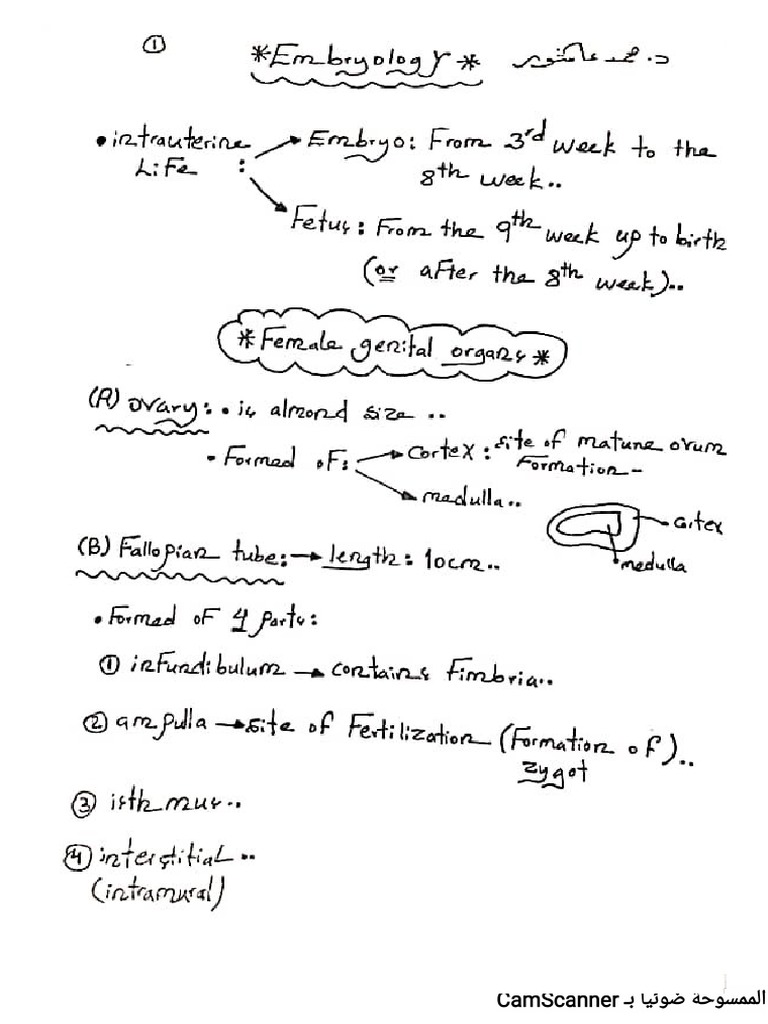 ①
*Embryology* د. محمد عاشور
• intrauterine Life :
→ Embryo: From 3rd week to the 8th week..
→ Fetus: From the 9th week up to birth (or after the 8th week)..
*Female genital organs*
(A) ovary: • is almond size ..
• Formed of: → Cortex: site of mature ovum Formation-
→ medulla..
Cortex
medulla
(B) Fallopian tube: → length: 10cm..
• Formed of 4 parts:
① infundibulum → contains Fimbria..
② ampulla → site of Fertilization (Formation of zygot)..
③ isthmus..
④ interstitial..
(intramural)
الممسوحة ضوئيا بـ CamScanner